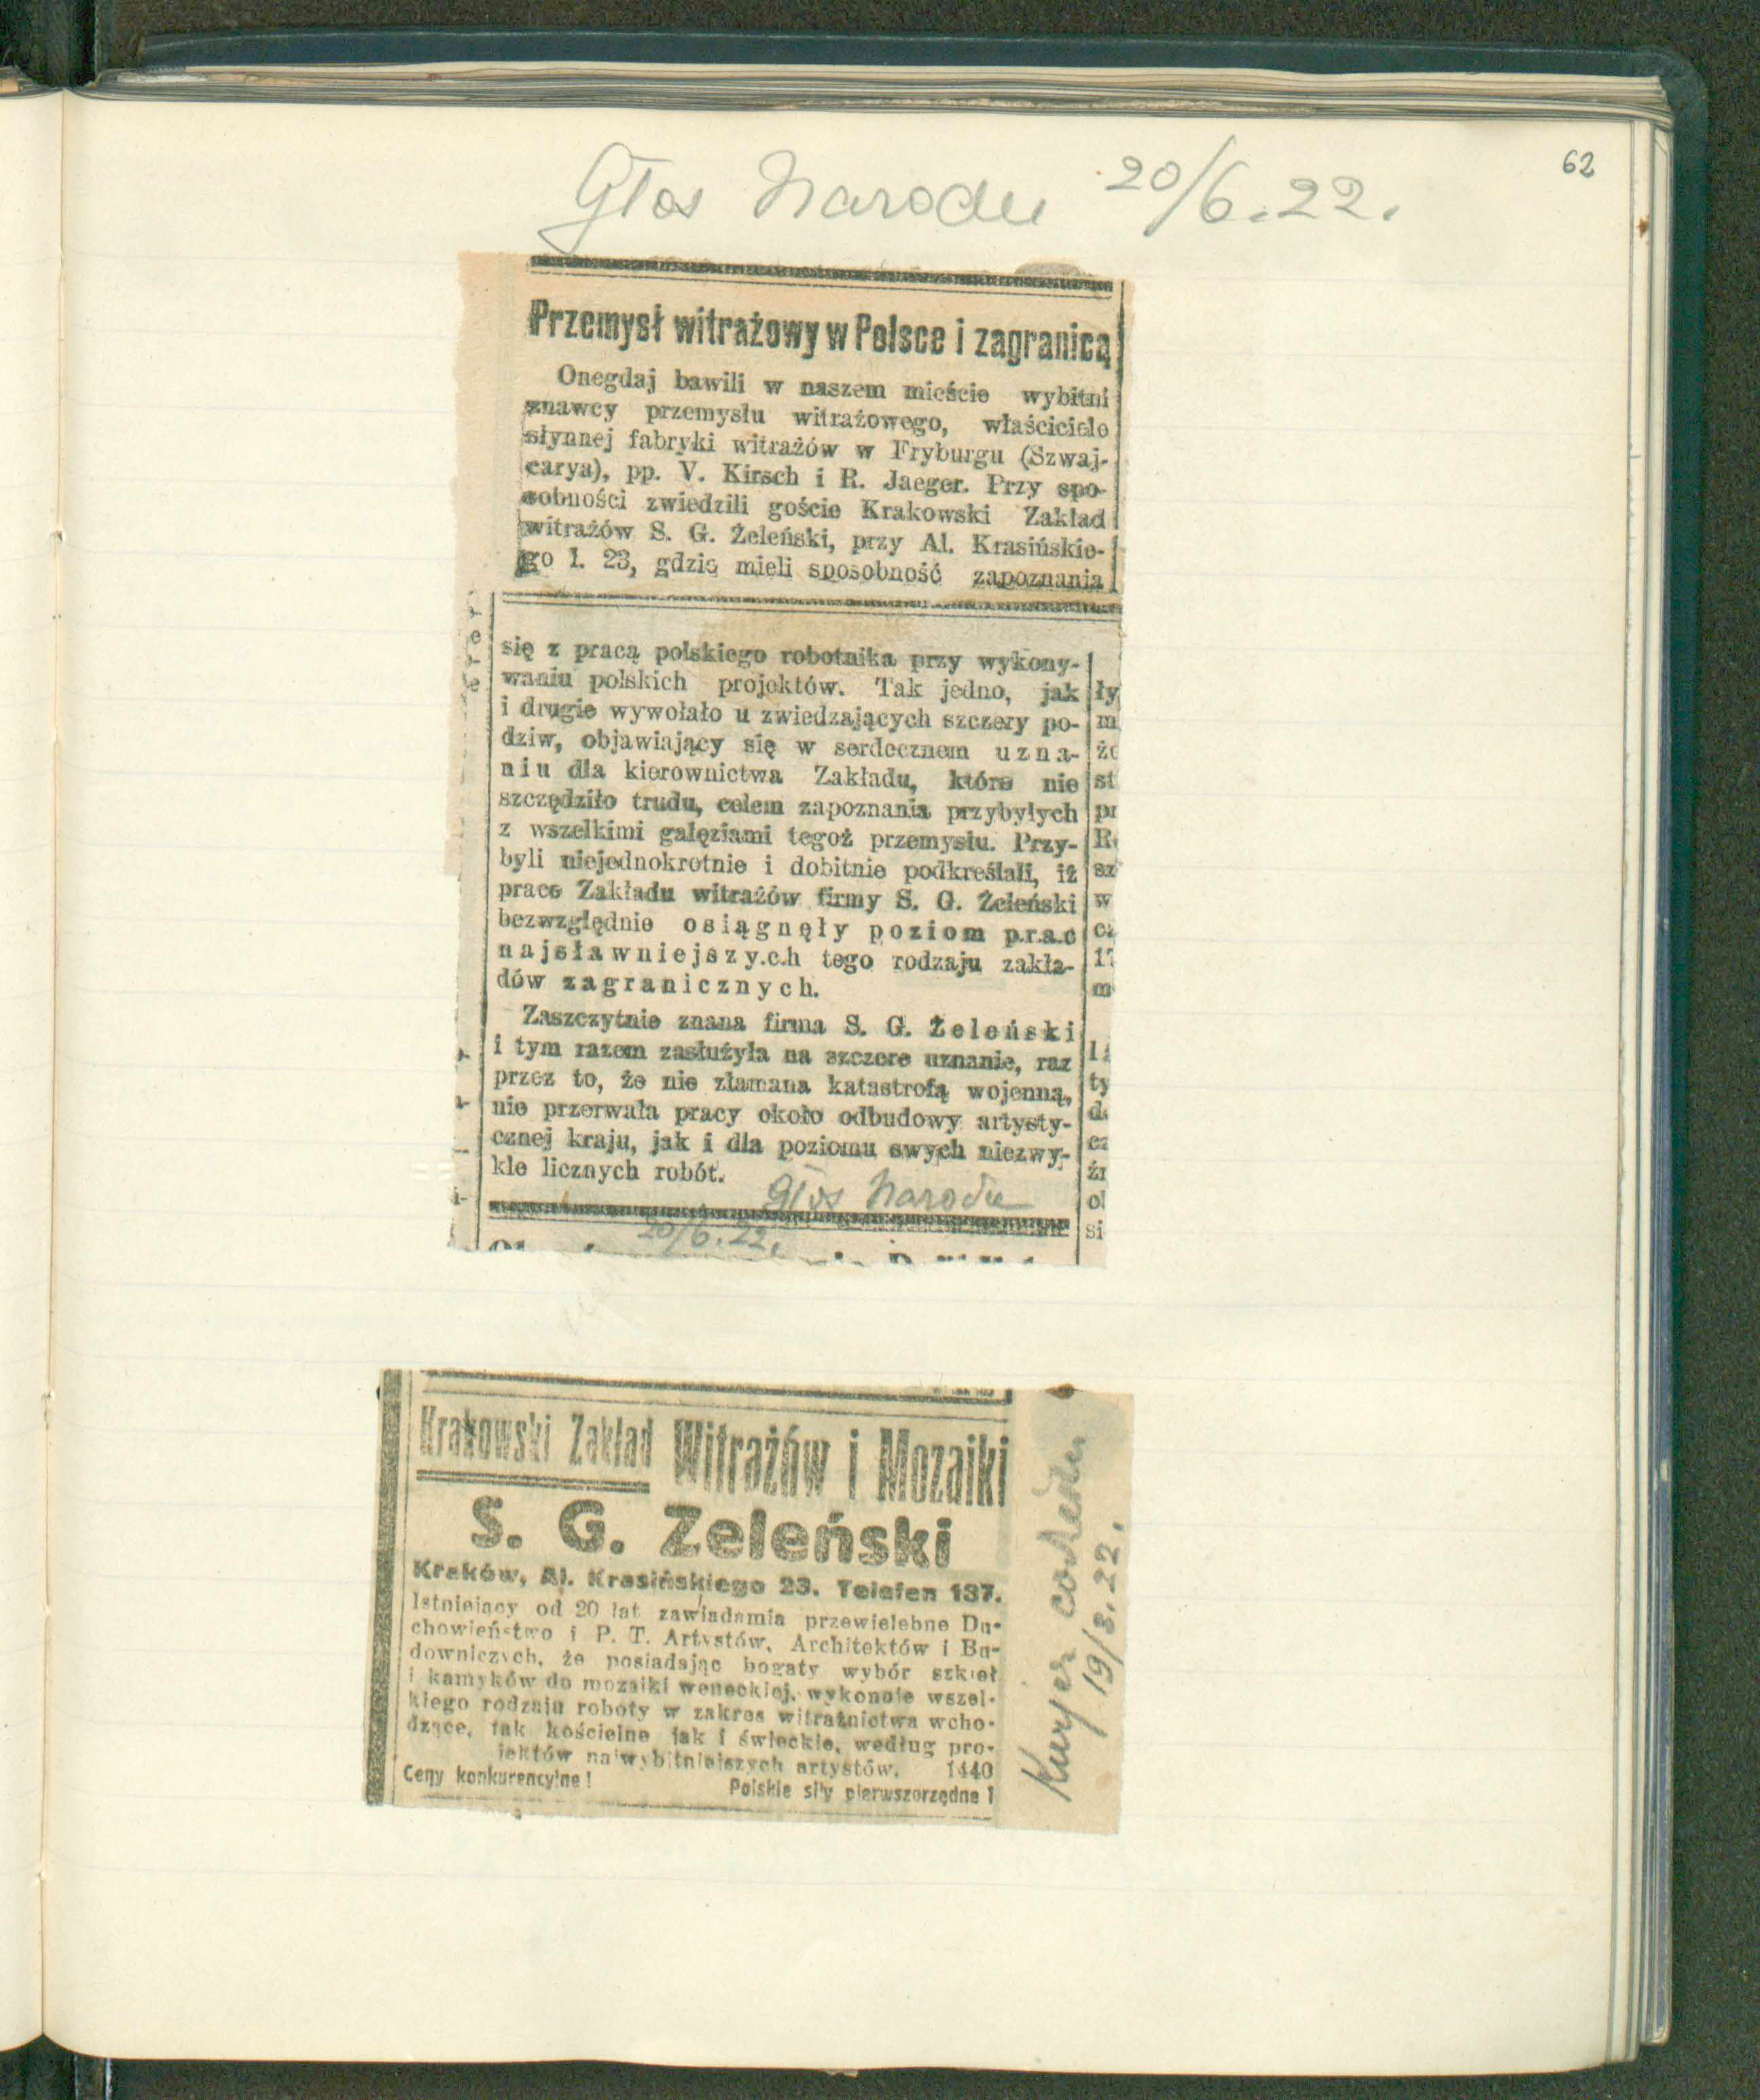 62
Głos Narodu 20/6.22.
Przemysł witrażowy w Polsce i zagranicą
Onegdaj bawili w naszem mieście wybitni
znawcy przemysłu witrażowego, właściciele
słynnej fabryki witrażów w Fryburgu (Szwaj-
carya), pp. V. Kirsch i R. Jaeger. Przy spo-
sobności zwiedzili goście Krakowski Zakład
witrażów S. G. Żeleński, przy Al. Krasińskie-
go l. 23, gdzie mieli sposobność zapoznania
się z pracą polskiego robotnika przy wykony-
waniu polskich projektów. Tak jedno, jak
i drugie wywołało u zwiedzających szczery po-
dziw, objawiający się w serdecznem uzna-
niu dla kierownictwa Zakładu, które nie
szczędziło trudu, celem zapoznania przybyłych
z wszelkimi gałęziami tegoż przemysłu. Przy-
byli niejednokrotnie i dobitnie podkreślali, iż
prace Zakładu witrażów firmy S. G. Żeleński
bezwzględnie osiągnęły poziom prac
najsławniejszych tego rodzaju zakła-
dów zagranicznych.
Zaszczytnie znana firma S. G. Żeleński
i tym razem zasłużyła na szczere uznanie, raz
przez to, że nie złamana katastrofą wojenną,
nie przerwała pracy około odbudowy artysty-
cznej kraju, jak i dla poziomu swych niezwy-
kle licznych robót.
Głos Narodu
20/6.22.
Krakowski Zakład Witrażów i Mozaiki
S. G. Zeleński
Kraków, Al. Krasińskiego 23. Telefen 137.
Istniejący od 20 lat zawiadamia przewielebne Du-
chowieństwo i P. T. Artystów, Architektów i Bu-
downiczych, że posiadając bogaty wybór szkieł
i kamyków do mozaiki weneckiej, wykonuje wszel-
kiego rodzaju roboty w zakres witrażnictwa wcho-
dzące, tak kościelne jak i świeckie, według pro-
jektów najwybitniejszych artystów. 1440
Ceny konkurencyjne! Polskie siły pierwszorzędne!
Kurjer codzienn
19/8.22.